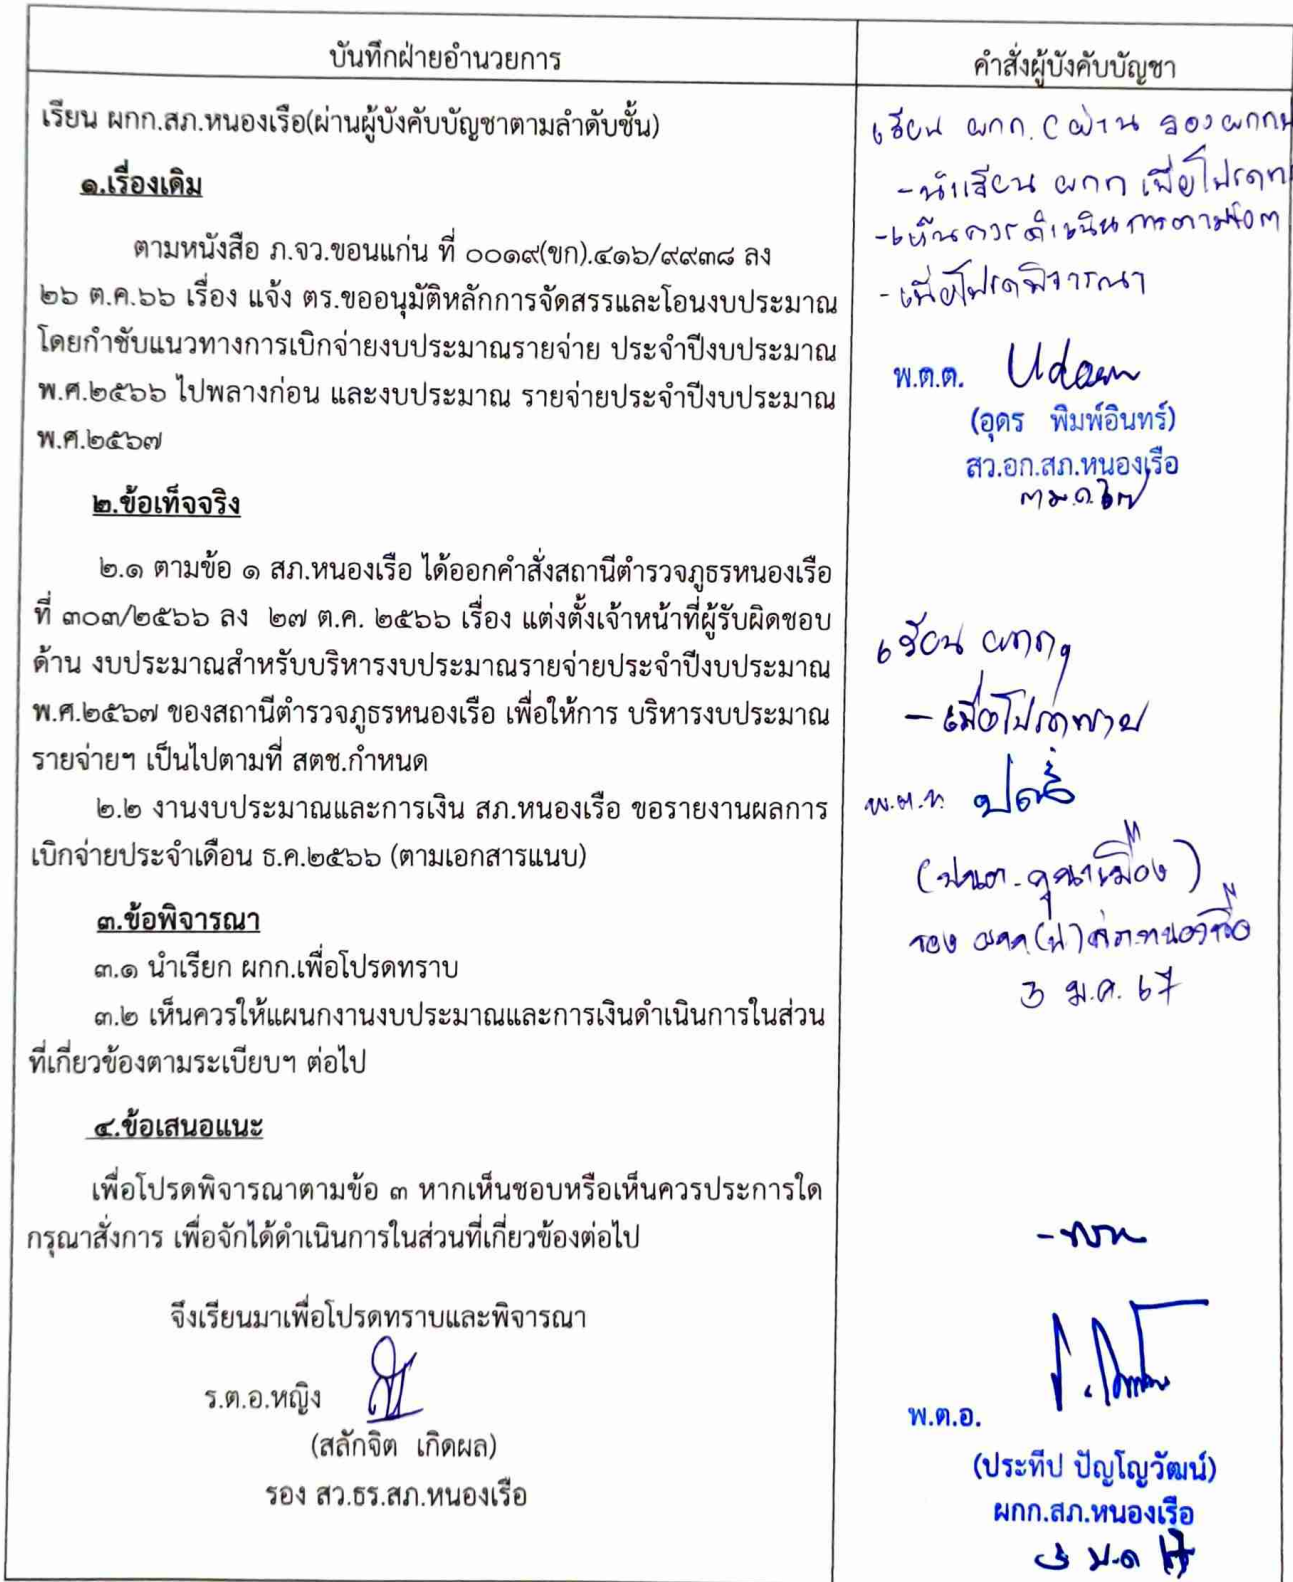 บันทึกฝ่ายอำนวยการ
เรียน ผกก.สภ.หนองเรือ(ผ่านผู้บังคับบัญชาตามลำดับชั้น)
๑.เรื่องเดิม
ตามหนังสือ ภ.จว.ขอนแก่น ที่ ๐๐๑๙(ขก).๔๑๖/๙๙๓๘ ลง
๒๖ ต.ค.๖๖ เรื่อง แจ้ง ตร.ขออนุมัติหลักการจัดสรรและโอนงบประมาณ
โดยกำชับแนวทางการเบิกจ่ายงบประมาณรายจ่าย ประจำปีงบประมาณ
พ.ศ.๒๕๖๖ ไปพลางก่อน และงบประมาณ รายจ่ายประจำปีงบประมาณ
พ.ศ.๒๕๖๗
๒.ข้อเท็จจริง
๒.๑ ตามข้อ ๑ สภ.หนองเรือ ได้ออกคำสั่งสถานีตำรวจภูธรหนองเรือ
ที่ ๓๐๓/๒๕๖๖ ลง ๒๗ ต.ค. ๒๕๖๖ เรื่อง แต่งตั้งเจ้าหน้าที่ผู้รับผิดชอบ
ด้าน งบประมาณสำหรับบริหารงบประมาณรายจ่ายประจำปีงบประมาณ
พ.ศ.๒๕๖๗ ของสถานีตำรวจภูธรหนองเรือ เพื่อให้การ บริหารงบประมาณ
รายจ่ายฯ เป็นไปตามที่ สตช.กำหนด
๒.๒ งานงบประมาณและการเงิน สภ.หนองเรือ ขอรายงานผลการ
เบิกจ่ายประจำเดือน ธ.ค.๒๕๖๖ (ตามเอกสารแนบ)
๓.ข้อพิจารณา
๓.๑ นำเรียก ผกก.เพื่อโปรดทราบ
๓.๒ เห็นควรให้แผนกงานงบประมาณและการเงินดำเนินการในส่วน
ที่เกี่ยวข้องตามระเบียบฯ ต่อไป
๔.ข้อเสนอแนะ
เพื่อโปรดพิจารณาตามข้อ ๓ หากเห็นชอบหรือเห็นควรประการใด
กรุณาสั่งการ เพื่อจักได้ดำเนินการในส่วนที่เกี่ยวข้องต่อไป
จึงเรียนมาเพื่อโปรดทราบและพิจารณา
ร.ต.อ.หญิง
(สลักจิต เกิดผล)
รอง สว.ธร.สภ.หนองเรือ
คำสั่งผู้บังคับบัญชา
เรียน ผกก. (ผ่าน รอง ผกก
- นำเรียน ผกก เพื่อโปรดท
- เห็นควรดำเนินการตามข้อ ๓
- เพื่อโปรดพิจารณา
พ.ต.ต.
(อุดร พิมพ์อินทร์)
สว.อก.สภ.หนองเรือ
๓ ม.ค. ๖๗
เรียน ผกก.
- เพื่อโปรดทราบ
พ.ต.ท.
รอง ผกก.(ป) สภ.หนองเรือ
3 ม.ค. 67
- ทราบ
พ.ต.อ.
(ประทีป ปัญโญวัฒน์)
ผกก.สภ.หนองเรือ
3 ม.ค 67